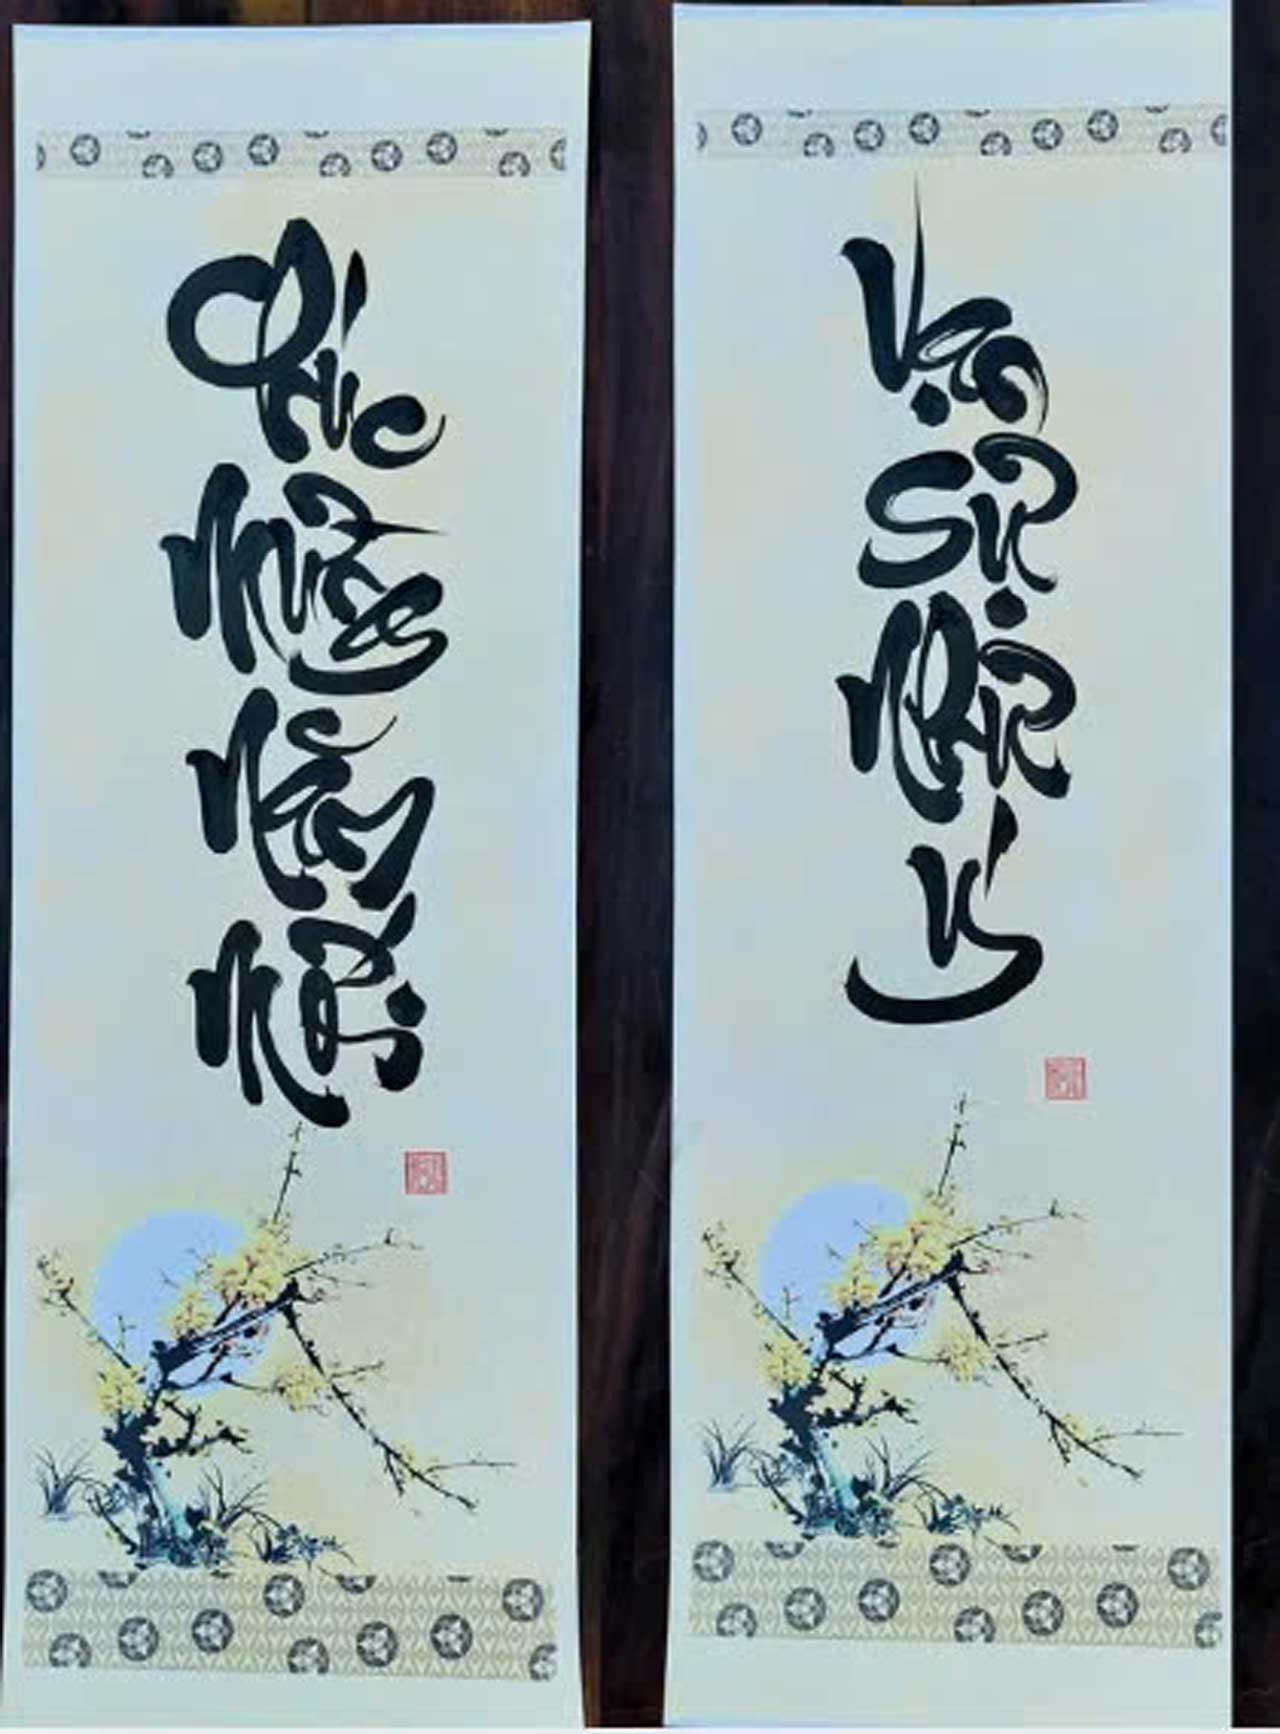 Chúc
Mừng
Năm
Mới
Vạn
Sự
Như
Ý